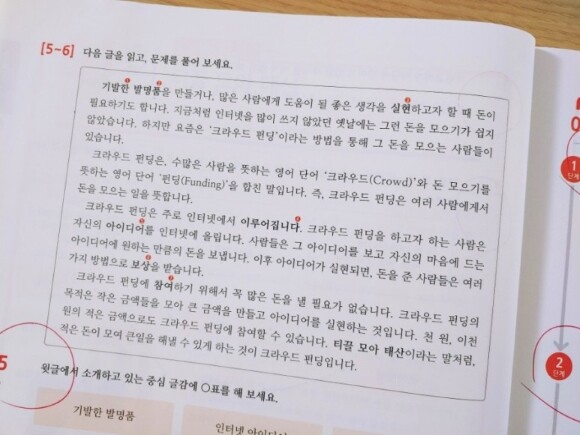 [5~6] 다음 글을 읽고, 문제를 풀어 보세요.
기발한 발명품을 만들거나, 많은 사람에게 도움이 될 좋은 생각을 실현하고자 할 때 돈이
필요하기도 합니다. 지금처럼 인터넷을 많이 쓰지 않았던 옛날에는 그런 돈을 모으기가 쉽지
않았습니다. 하지만 요즘은 ‘크라우드 펀딩’이라는 방법을 통해 그 돈을 모으는 사람들이
있습니다.
크라우드 펀딩은, 수많은 사람을 뜻하는 영어 단어 ‘크라우드(Crowd)’와 돈 모으기를
뜻하는 영어 단어 ‘펀딩(Funding)’을 합친 말입니다. 즉, 크라우드 펀딩은 여러 사람에게서
돈을 모으는 일을 뜻합니다.
크라우드 펀딩은 주로 인터넷에서 이루어집니다. 크라우드 펀딩을 하고자 하는 사람은
자신의 아이디어를 인터넷에 올립니다. 사람들은 그 아이디어를 보고 자신의 마음에 드는
아이디어에 원하는 만큼의 돈을 보냅니다. 이후 아이디어가 실현되면, 돈을 준 사람들은 여러
가지 방법으로 보상을 받습니다.
크라우드 펀딩에 참여하기 위해서 꼭 많은 돈을 낼 필요가 없습니다. 크라우드 펀딩의
목적은 작은 금액들을 모아 큰 금액을 만들고 아이디어를 실현하는 것입니다. 천 원, 이천
원의 적은 금액으로도 크라우드 펀딩에 참여할 수 있습니다. 티끌 모아 태산이라는 말처럼,
적은 돈이 모여 큰일을 해낼 수 있게 하는 것이 크라우드 펀딩입니다.
5
윗글에서 소개하고 있는 중심 글감에 ○표를 해 보세요.
기발한 발명품
인터넷 아이디어
1
단계
2
단계